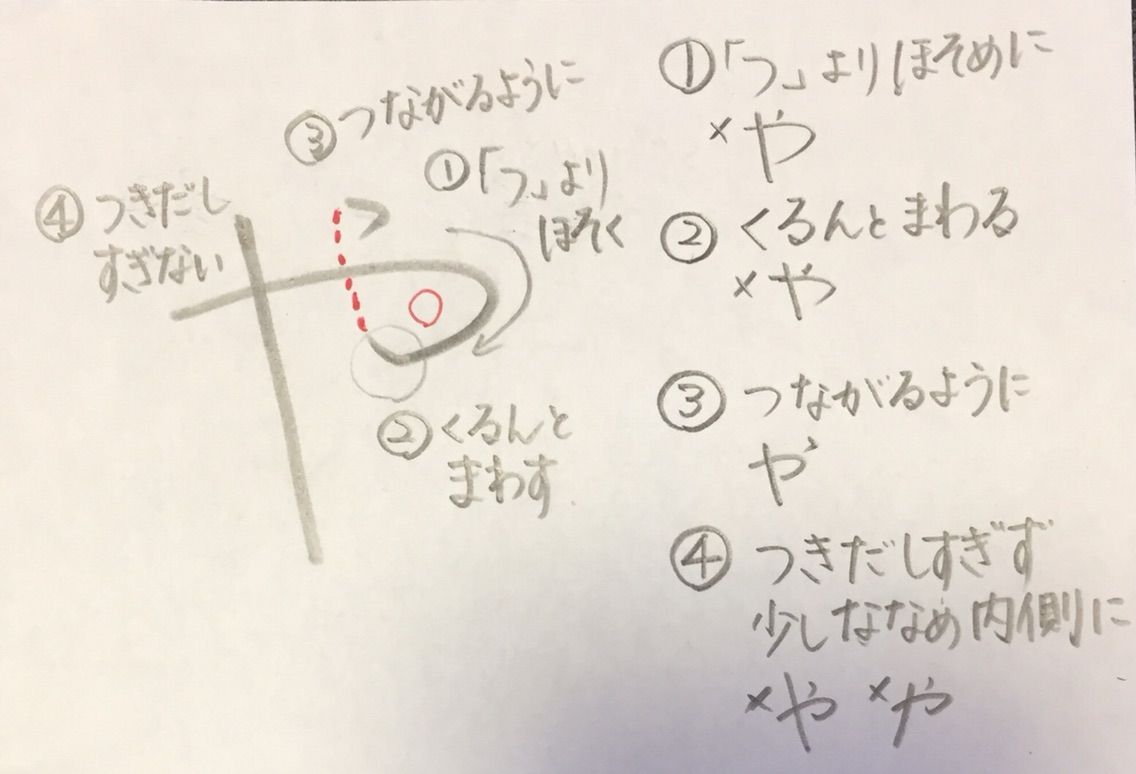 ③つながるように
①「つ」より
ほそく
④つきだし
すぎない
②くるんと
まわす
①「つ」よりほそめに
×や
②くるんとまわる
×や
③つながるように
や
④つきだしすぎず
少しななめ内側に
×や ×や
や